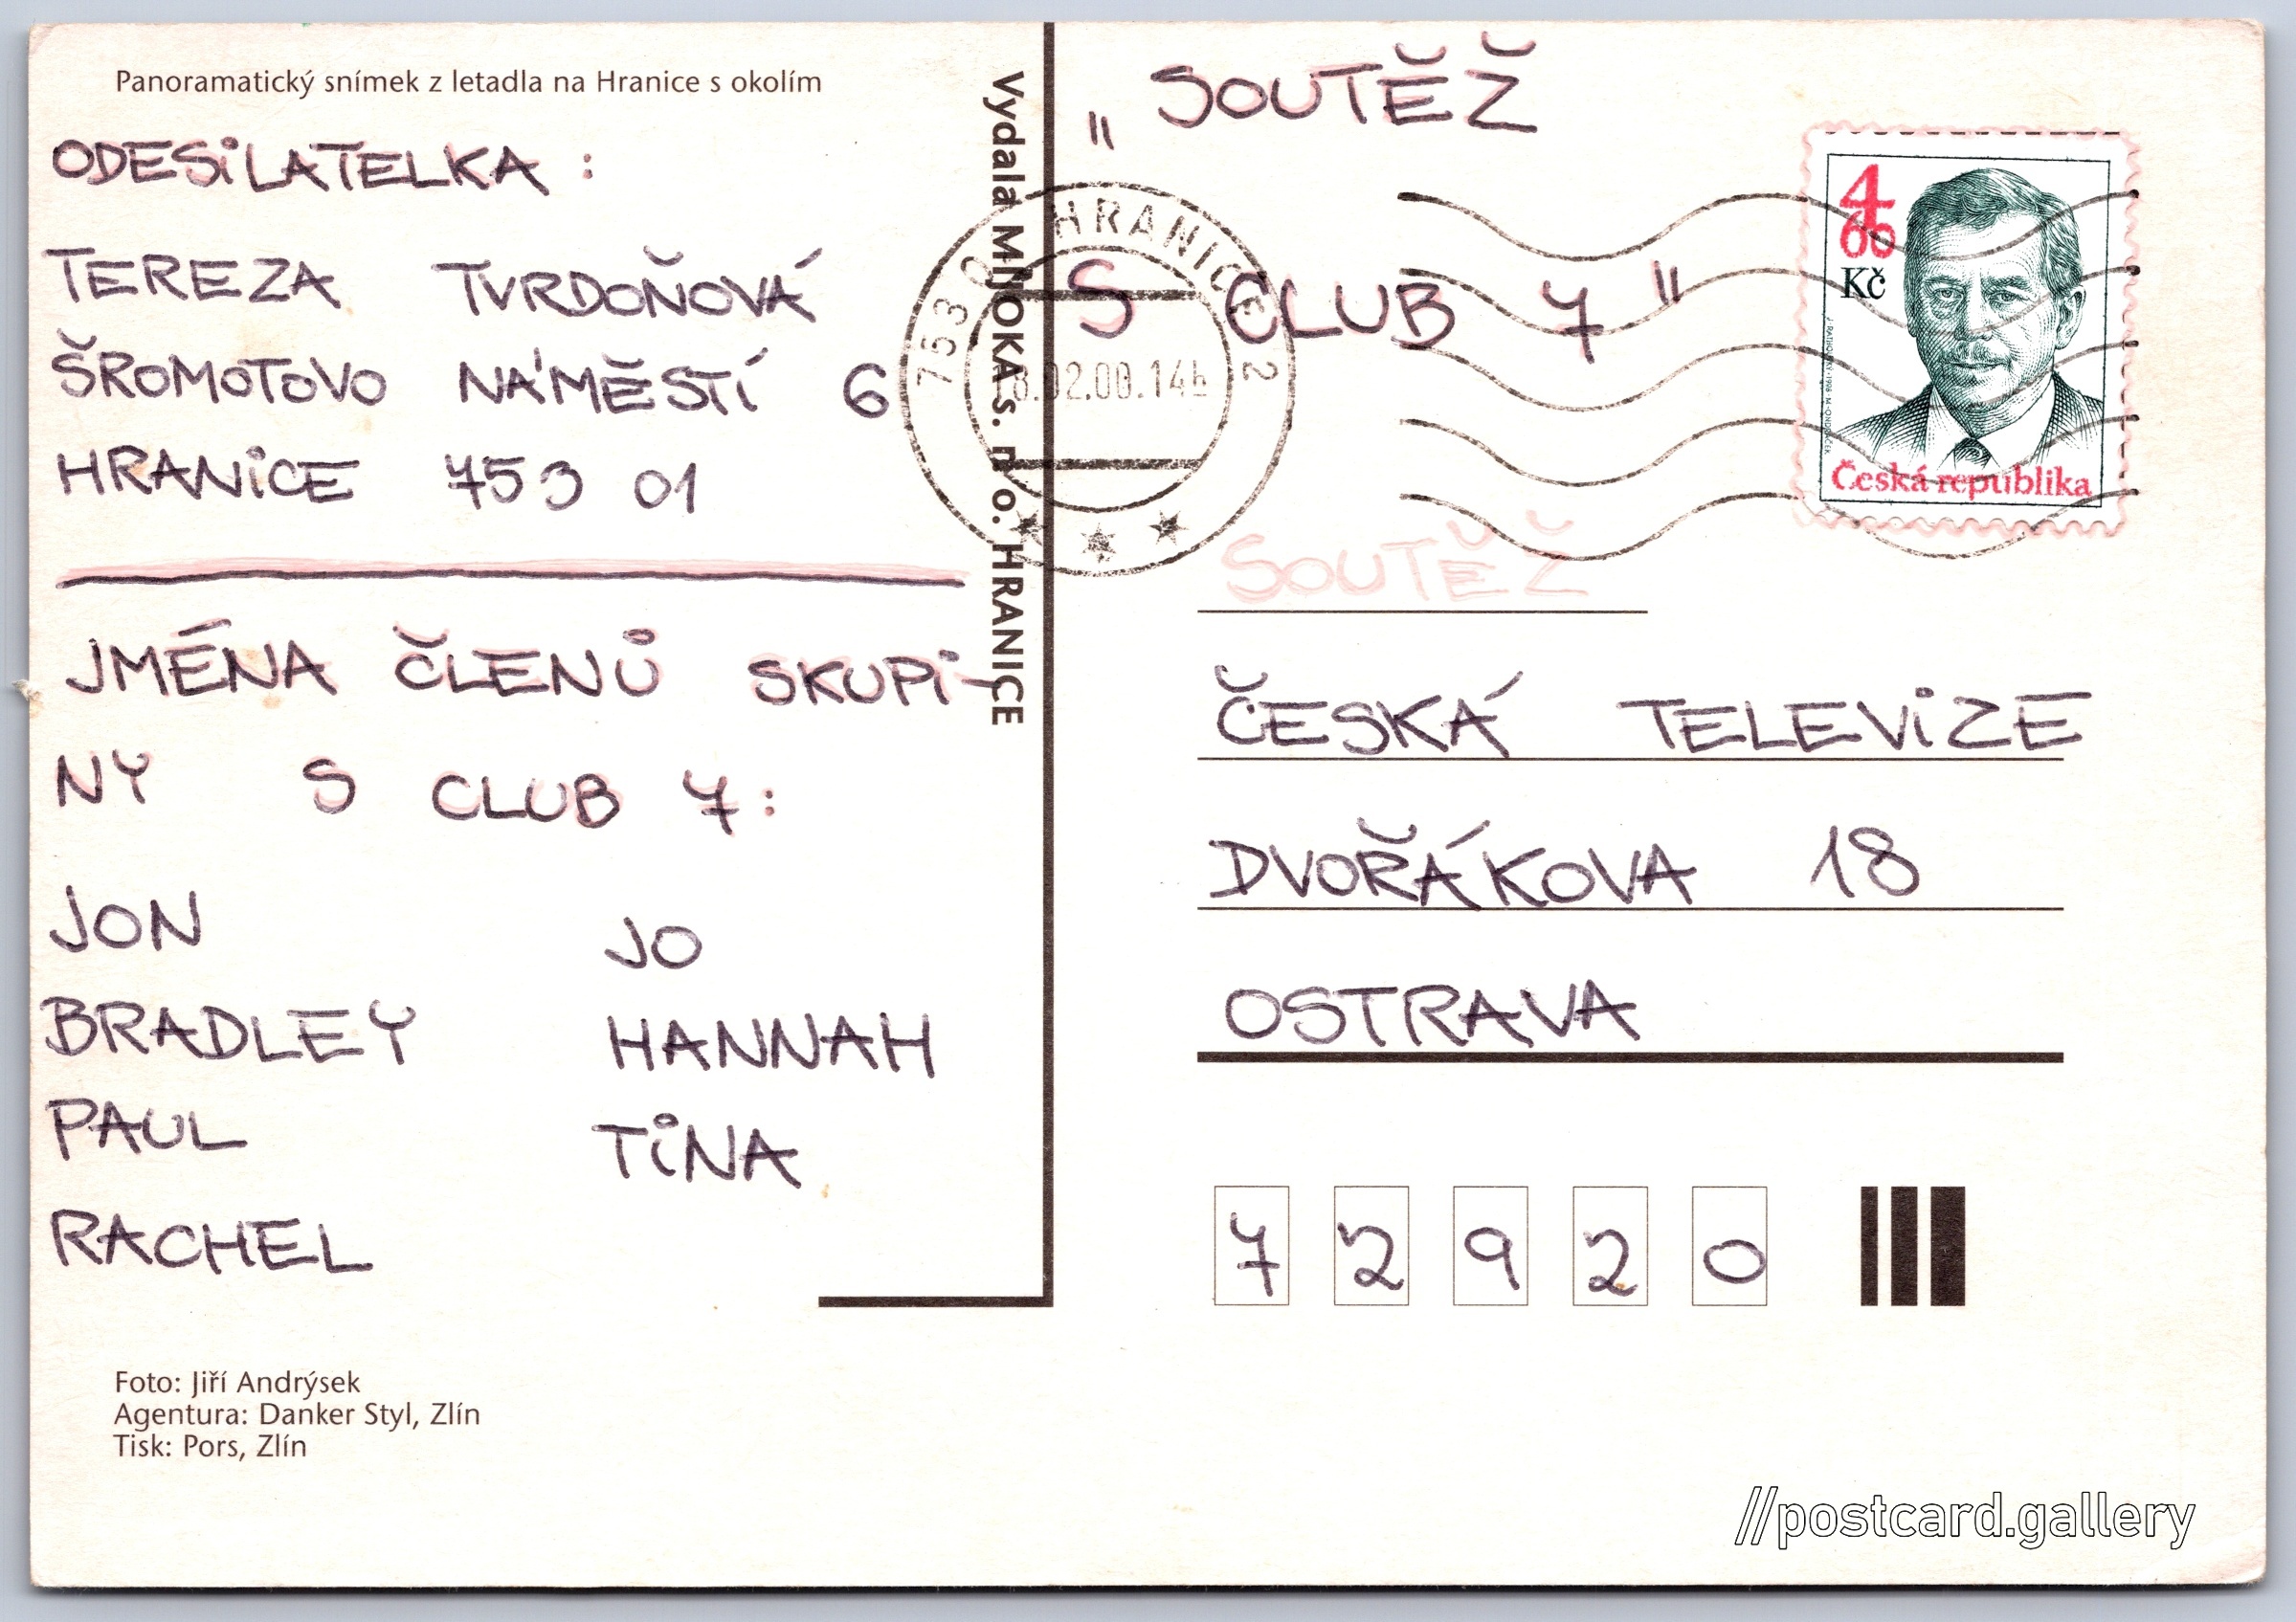 Panoramatický snímek z letadla na Hranice s okolím
ODESILATELKA :
TEREZA TVRDOŇOVÁ
ŠROMOTOVO NÁMĚSTÍ 6
HRANICE 753 01
JMÉNA ČLENŮ SKUPI-
NY S CLUB 7:
JON JO
BRADLEY HANNAH
PAUL TINA
RACHEL
Foto: Jiří Andrýsek
Agentura: Danker Styl, Zlín
Tisk: Pors, Zlín
Vydala s. r. o. HRANICE
HRANICE 2
.02.00.14h
„ SOUTĚŽ
S CLUB 7 "
4 00
Kč
Česká republika
SOUTĚŽ
ČESKÁ TELEVIZE
DVOŘÁKOVA 18
OSTRAVA
7 2 9 2 0
//postcard.gallery